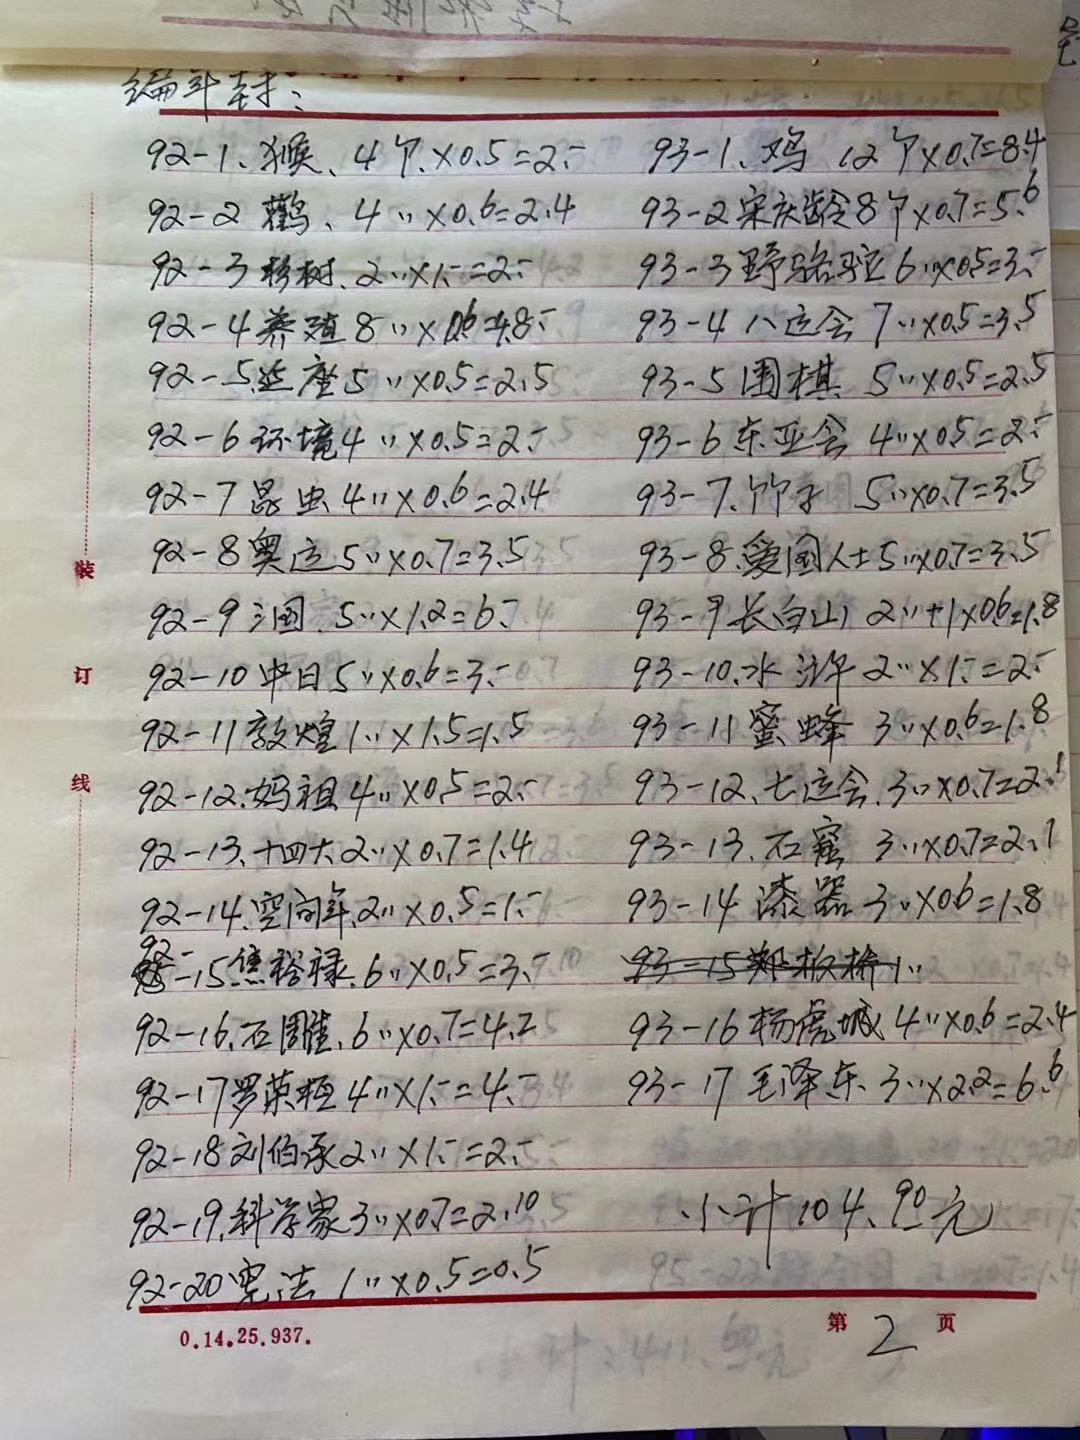 编年封：
92-1、猴、4个×0.5=2.-
92-2 鹳、4〃×0.6=2.4
92-3 杉树、2〃×1.-=2.-
92-4 养殖 8〃×0.6=4.8-
92-5 延座 5〃×0.5=2.5
92-6 环境 4〃×0.5=2.-
92-7 昆虫 4〃×0.6=2.4
92-8 奥运 5〃×0.7=3.5
92-9 三国、5〃×1.2=6.-
92-10 中日 5〃×0.6=3.-
92-11 敦煌 1〃×1.5=1.5
92-12、妈祖 4〃×0.5=2.-
92-13、十四大 2〃×0.7=1.4
92-14、空间年、2〃×0.5=1.-
92-15 焦裕禄、6〃×0.5=3.-
92-16、石雕、6〃×0.7=4.2
92-17 罗荣桓 4〃×1.-=4.-
92-18 刘伯承 2〃×1.-=2.-
92-19、科学家 3〃×0.7=2.10
92-20 宪法 1〃×0.5=0.5
93-1、鸡 12个×0.7=8.4
93-2 宋庆龄 8个×0.7=5.6
93-3 野骆驼 6〃×0.5=3.-
93-4 八运会 7〃×0.5=3.5
93-5 围棋 5〃×0.5=2.5
93-6 东亚会 4〃×0.5=2.-
93-7、竹子 5〃×0.7=3.5
93-8、爱国人士 5〃×0.7=3.5
93-9 长白山 2〃+1×0.6=1.8
93-10、水浒 2〃×1.-=2.-
93-11 蜜蜂 3〃×0.6=1.8
93-12、七运会、3〃×0.7=2.1
93-13、石窟 3〃×0.7=2.1
93-14 漆器 3〃×0.6=1.8
93-15 郑板桥 1〃
93-16 杨虎城 4〃×0.6=2.4
93-17 毛泽东 3〃×2.2=6.6
小计 104.90元
装
订
线
0.14.25.937.
第 2 页